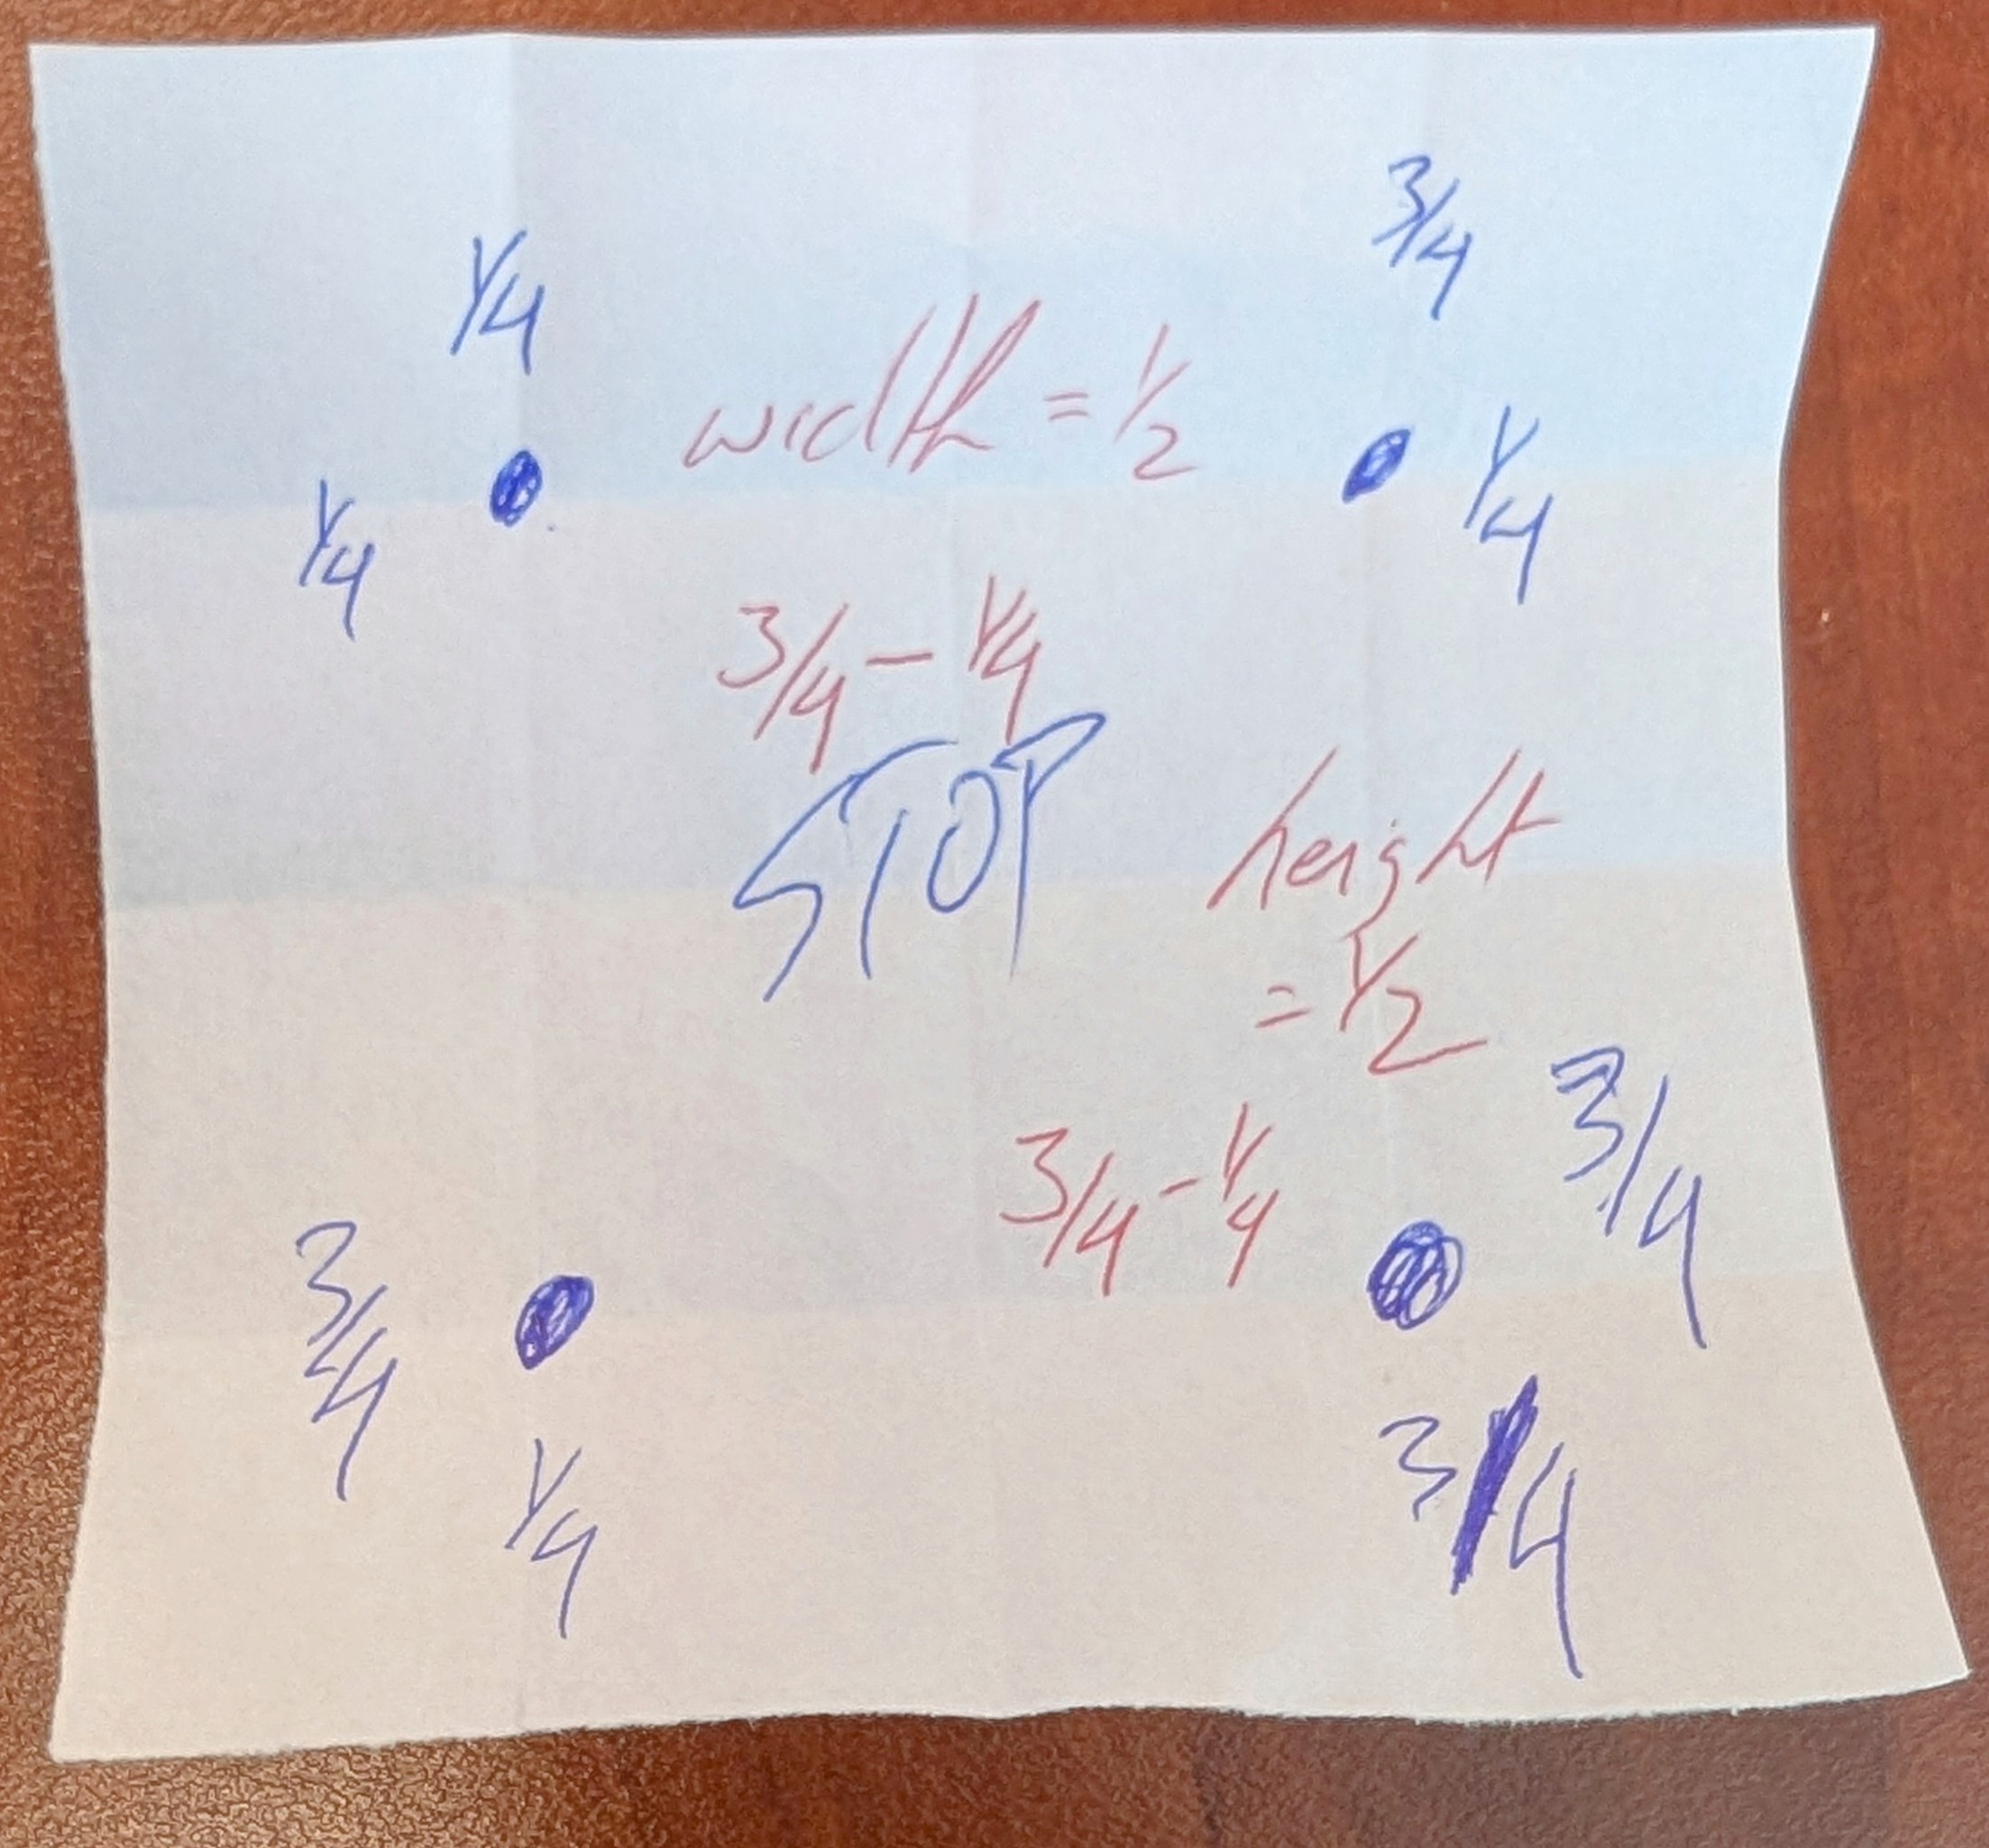 3/4
1/4
width = 1/2
1/4
1/4
3/4 - 1/4
STOP
height
= 1/2
3/4
3/4 - 1/4
3/4
3/4
1/4